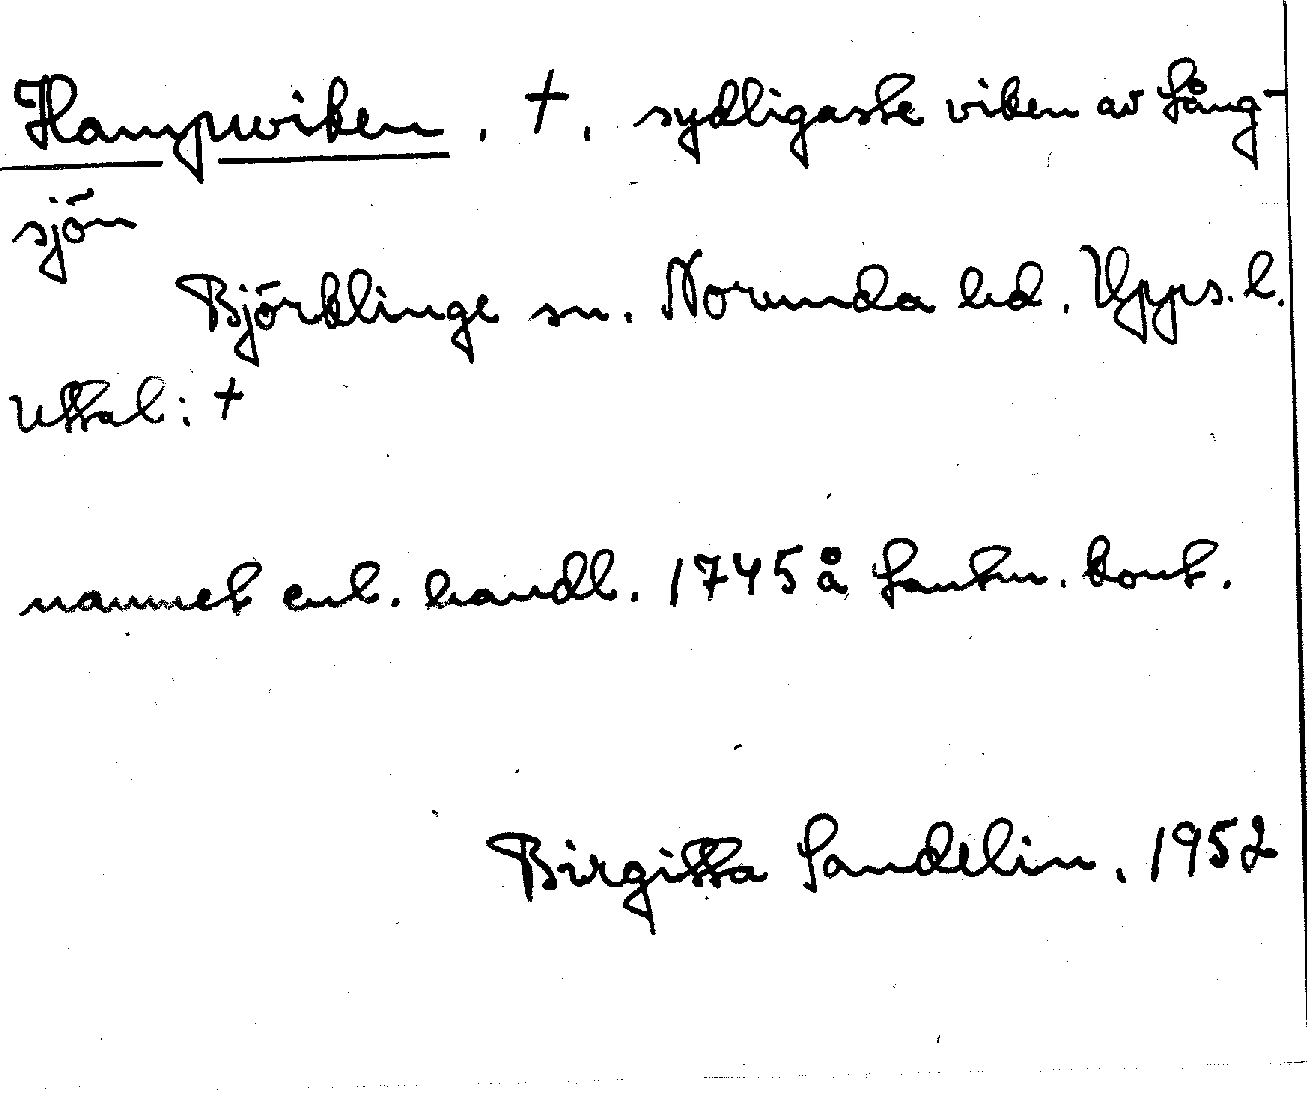 Hampwiken, †, sydligaste viken av Lång-
sjön
Björklinge sn. Norunda hd. Upps. l.
Uttal: †
namnet enl. handl. 1745 å Lantm. kont.
Birgitta Sandelin, 1952